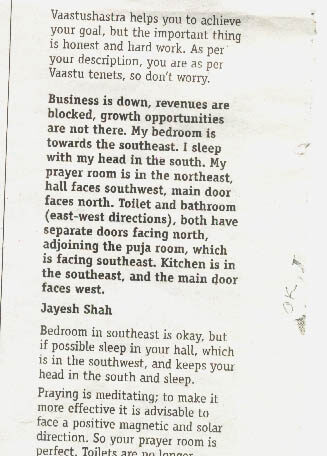 Vaastushastra helps you to achieve
your goal, but the important thing
is honest and hard work. As per
your description, you are as per
Vaastu tenets, so don't worry.
Business is down, revenues are
blocked, growth opportunities
are not there. My bedroom is
towards the southeast. I sleep
with my head in the south. My
prayer room is in the northeast,
hall faces southwest, main door
faces north. Toilet and bathroom
(east-west directions), both have
separate doors facing north,
adjoining the puja room, which
is facing southeast. Kitchen is in
the southeast, and the main door
faces west.
Jayesh Shah
Bedroom in southeast is okay, but
if possible sleep in your hall, which
is in the southwest, and keeps your
head in the south and sleep.
Praying is meditating; to make it
more effective it is advisable to
face a positive magnetic and solar
direction. So your prayer room is
perfect. Toilets are no longer
OK